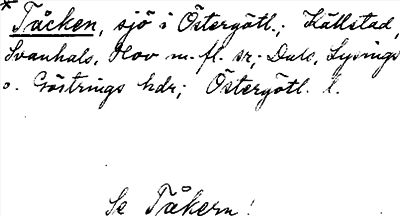 * Täcken, sjö i Östergötl.; Källstad,
Svanhals, Hov m. fl. sr; Dals, Lysings
o. Göstrings hdr; Östergötl. l.
Se Tåkern!